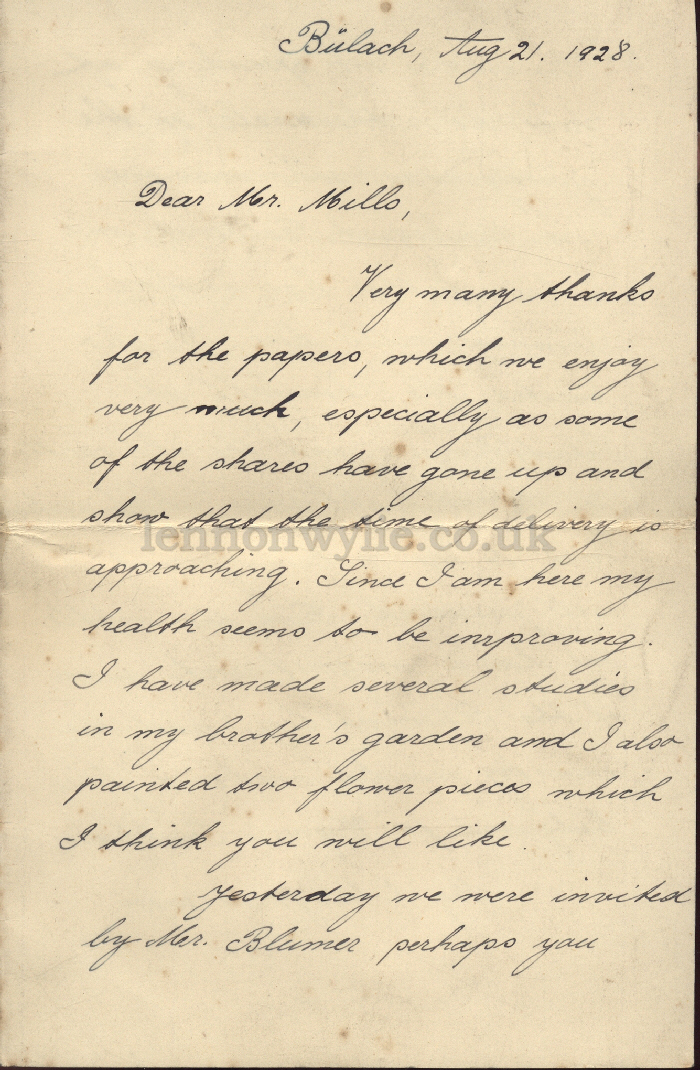 Bülach, Aug 21. 1928.
Dear Mr. Mills,
Very many thanks
for the papers, which we enjoy
very much, especially as some
of the shares have gone up and
show that the time of delivery is
lennonwylie.co.uk
approaching. Since I am here my
health seems to be improving.
I have made several studies
in my brother's garden and I also
painted two flower pieces which
I think you will like.
Yesterday we were invited
by Mr. Blumer perhaps you